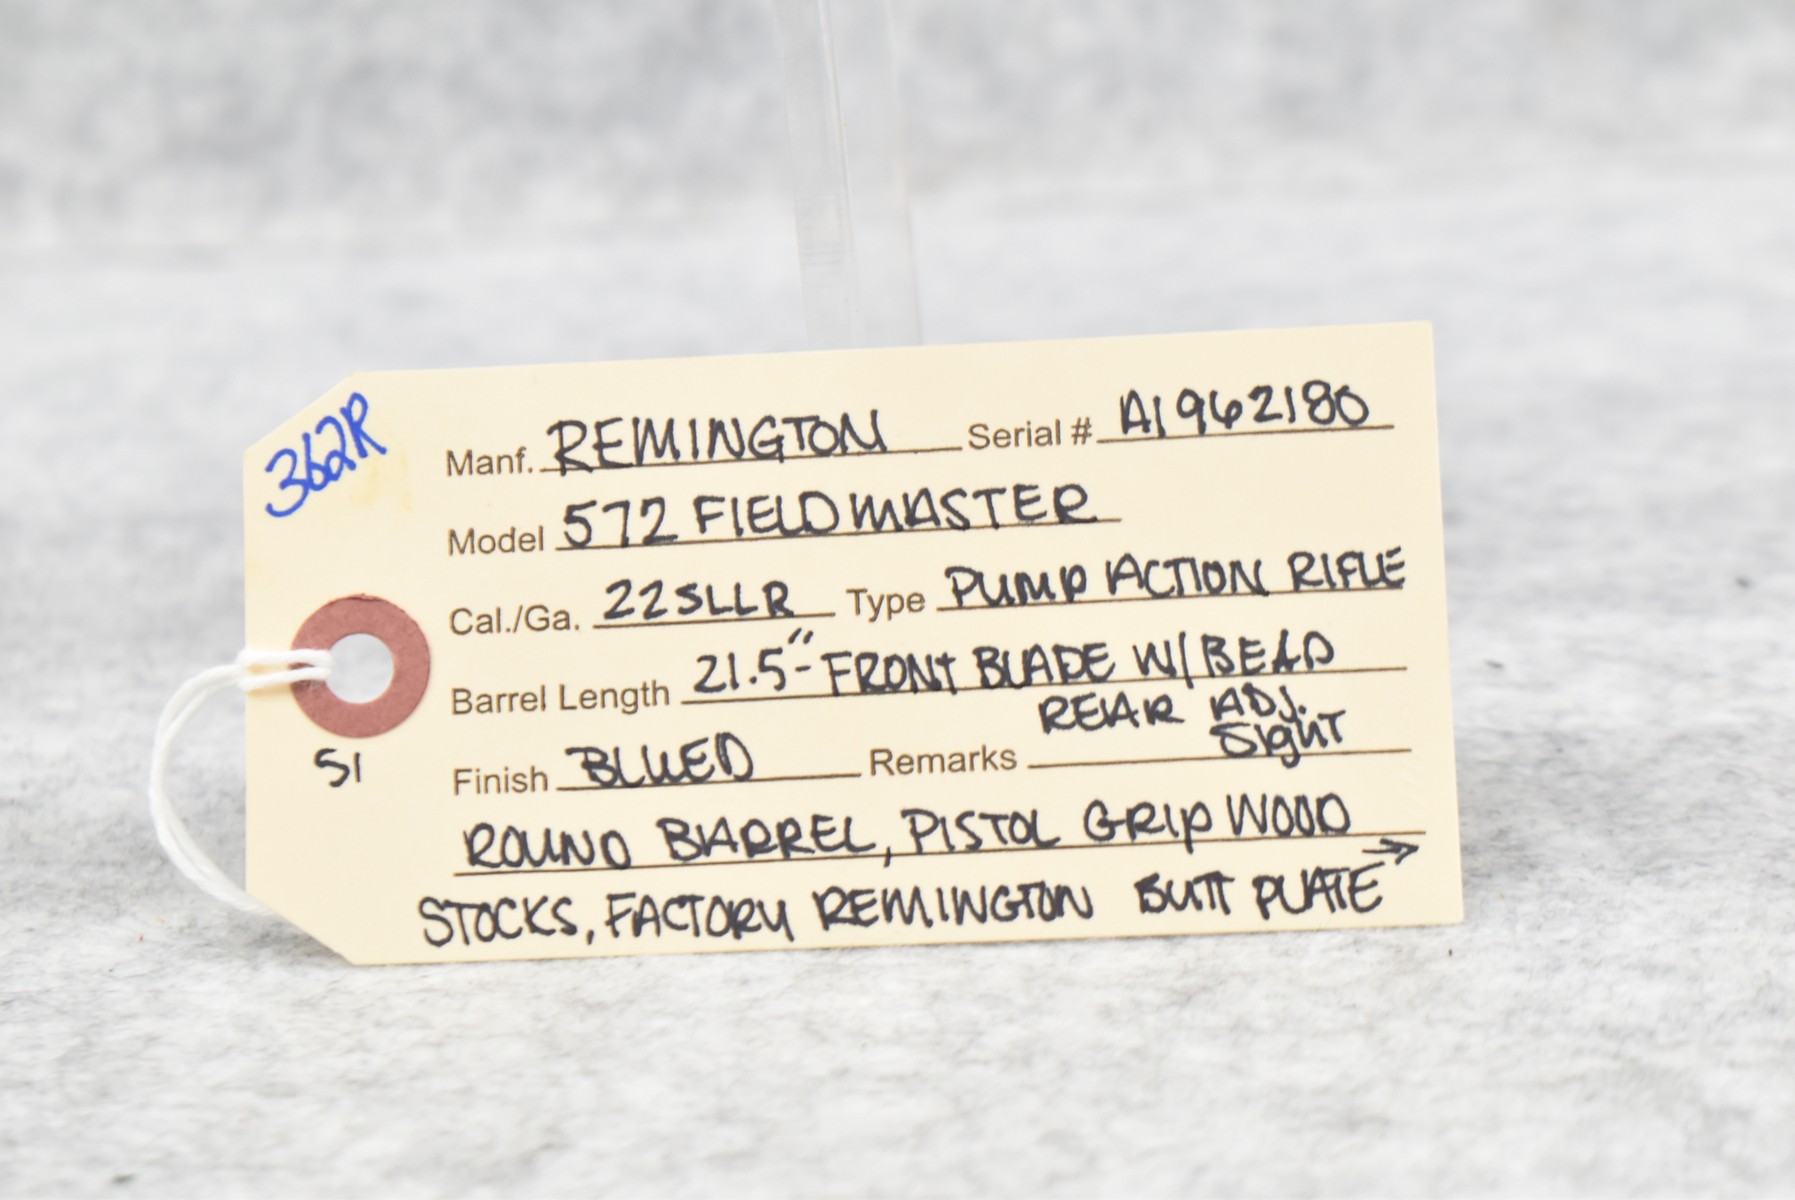 362R
Manf. REMINGTON Serial # A1962180
Model 572 FIELDMASTER
Cal./Ga. 22SLLR Type PUMP ACTION RIFLE
Barrel Length 21.5"- FRONT BLADE W/BEAD
REAR ADJ.
SIGHT
51
Finish BLUED Remarks
ROUND BARREL, PISTOL GRIP WOOD
STOCKS, FACTORY REMINGTON BUTT PLATE →